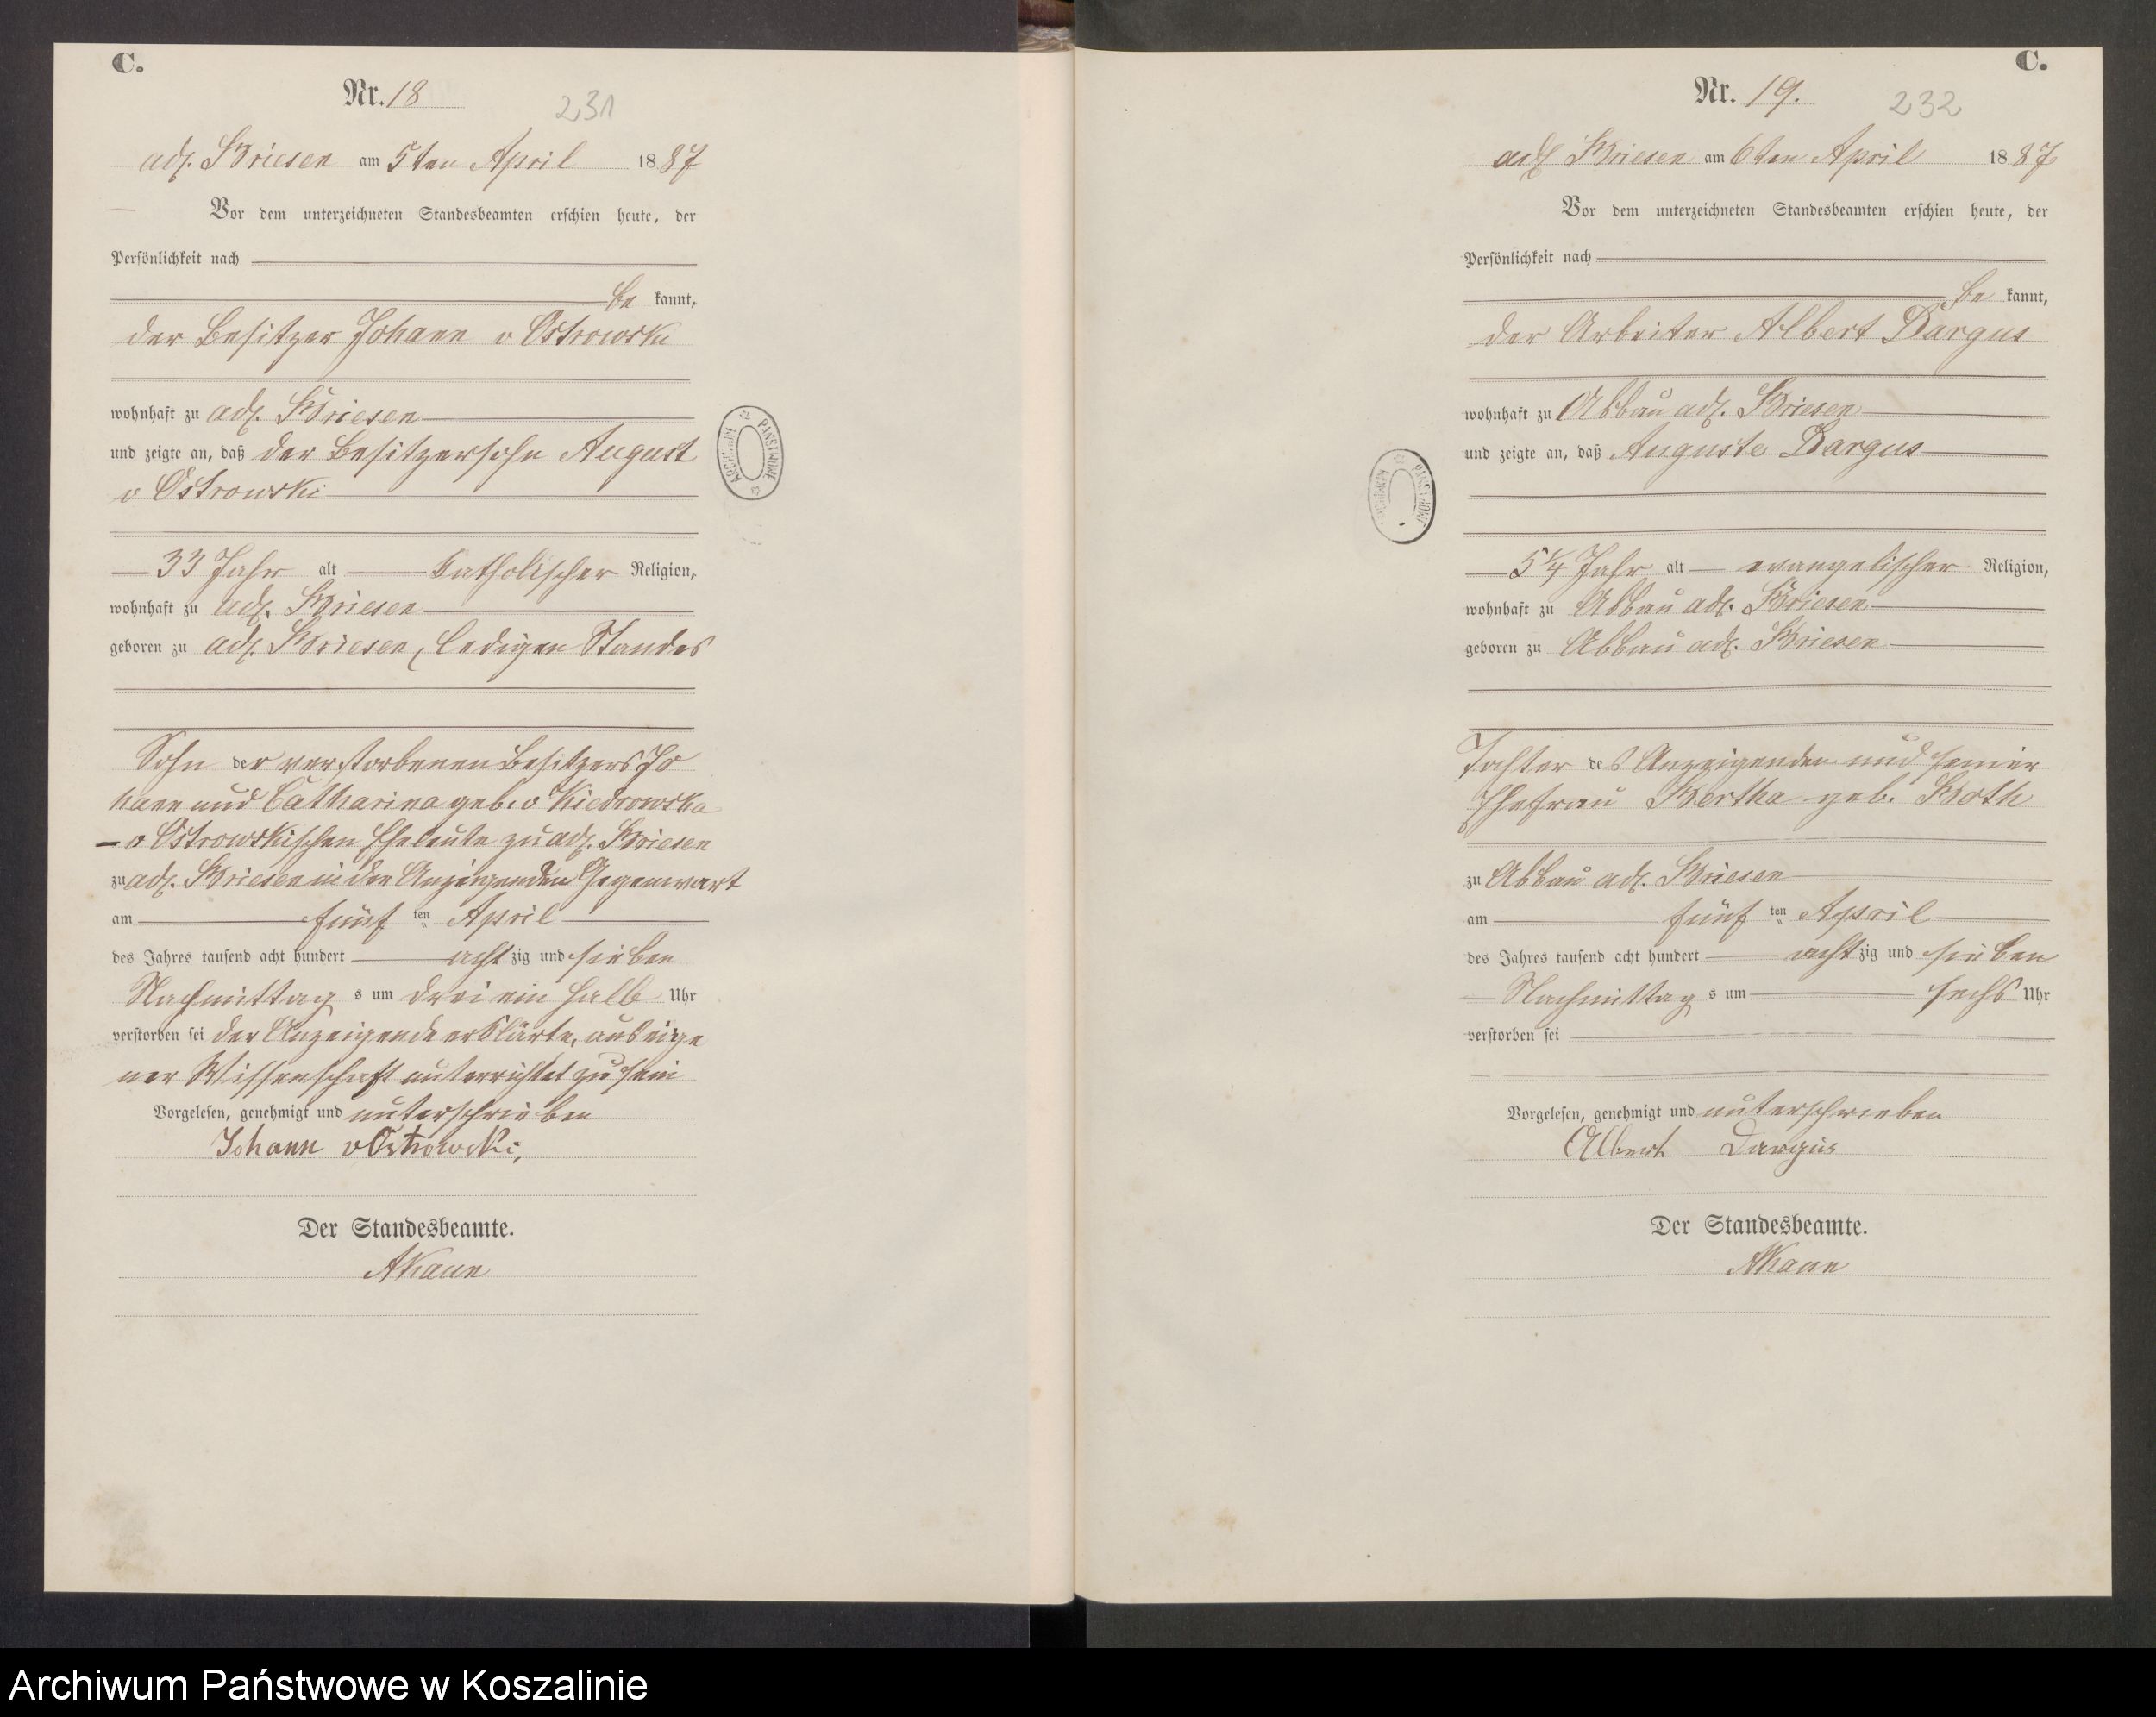 C.
Nr. 18
231
adl. Briesen am 5ten April 1887
Vor dem unterzeichneten Standesbeamten erschien heute, der
Persönlichkeit nach
be kannt,
der Besitzer Johann v Ostrowski
wohnhaft zu adl. Briesen
und zeigte an, daß der Besitzersohn August
v Ostrowski
33 Jahr alt katholischer Religion,
wohnhaft zu adl. Briesen
geboren zu adl. Briesen, ledigen Standes
Sohn der verstorbenen Besitzers Jo
hann und Catharina geb. v Kiedrowska
- v Ostrowskischen Eheleute zu adl. Briesen
zu adl. Briesen in des Anzeigenden Gegenwart
am fünf ten April
des Jahres tausend acht hundert acht zig und sieben
Nachmittag s um drei ein halb Uhr
verstorben sei der Anzeigende erklärte, aus eige
ner Wissenschaft unterrichtet zu sein
Vorgelesen, genehmigt und unterschrieben
Johann v Ostrowski,
Der Standesbeamte.
AKaun
ARCHIWUM PAŃSTWOWE
C.
Nr. 19.
232
adl Briesen am 6ten April 1887
Vor dem unterzeichneten Standesbeamten erschien heute, der
Persönlichkeit nach
be kannt,
der Arbeiter Albert Dargus
wohnhaft zu Abbau adl. Briesen
und zeigte an, daß Auguste Dargus
5 1/4 Jahr alt evangelischer Religion,
wohnhaft zu Abbau adl. Briesen
geboren zu Abbau adl. Briesen
Tochter des Anzeigenden und seiner
Ehefrau Bertha geb. Both
zu Abbau adl. Briesen
am fünf ten April
des Jahres tausend acht hundert acht zig und sieben
Nachmittag s um sechs Uhr
verstorben sei
Vorgelesen, genehmigt und unterschrieben
Albert Dargus
Der Standesbeamte.
AKaun
Archiwum Państwowe w Koszalinie